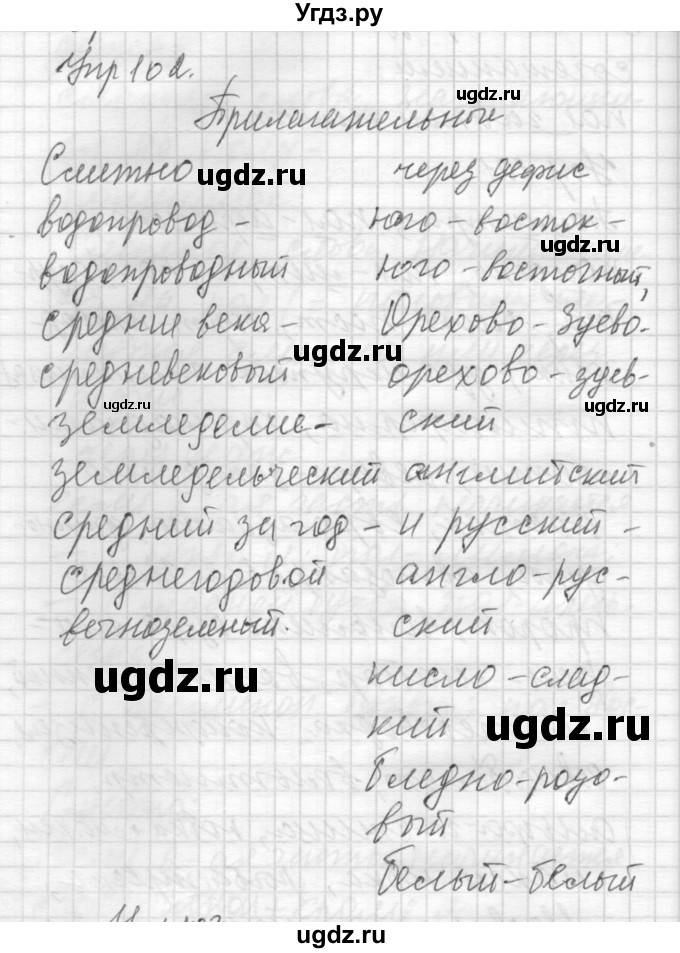 Угдз.ру
Упр 102.
ugdz.ru
Прилагательные
Слитно
ugdz.ru
через дефис
водопровод -
водопроводный
средние века -
ugdz.ru
средневековый
ugdz.ru
земледелие -
земледельческий
средний за год -
среднегодовой
вечнозеленый.
юго - восток -
ugdz.ru
юго - восточный,
Орехово - Зуево -
орехово - зуев-
ugdz.ru
ский
английский
и русский -
англо - рус-
ский
кисло - слад-
кий
бледно - розо-
вый
белый - белый
ugdz.ru
ugdz.ru
ugdz.ru